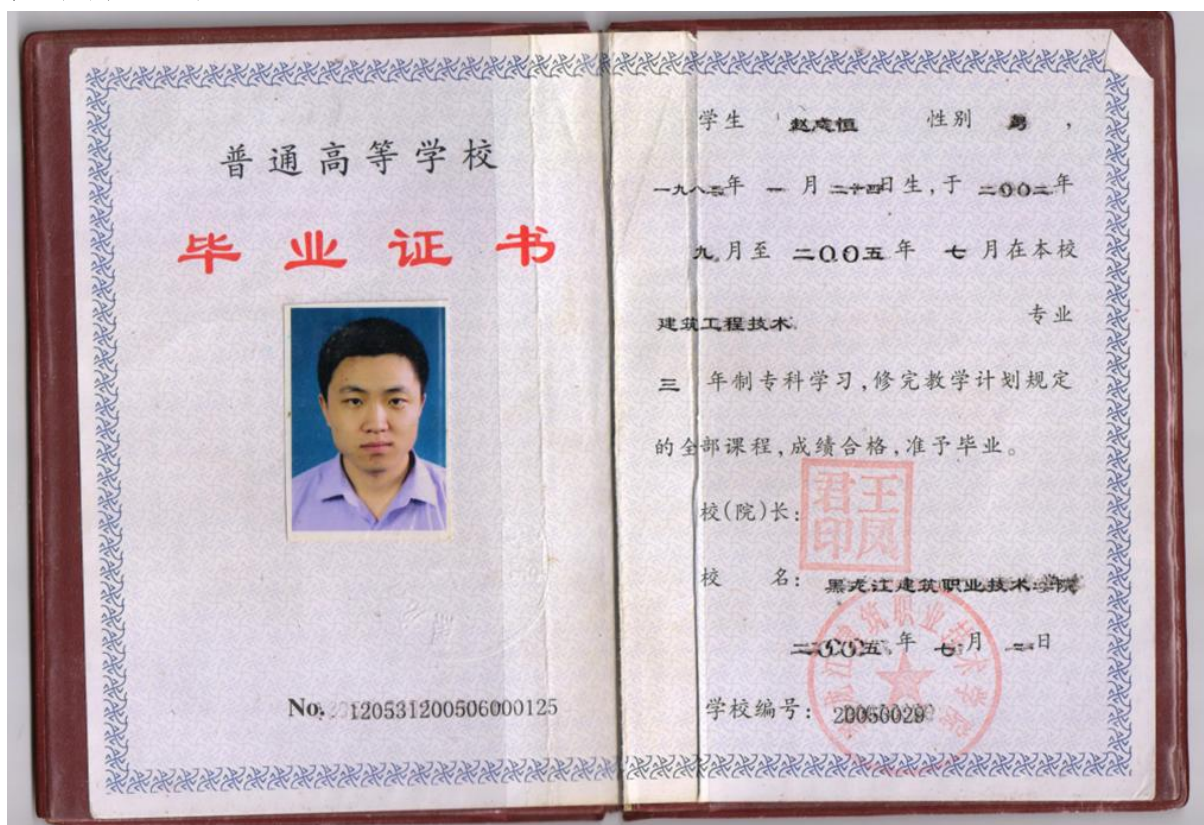 普通高等学校
毕业证书
No. 120531200506000125
学生 赵志恒 性别 男，
一九八二年 一 月 二十四日生，于 二00二年
九月至 二00五年 七 月在本校
建筑工程技术 专业
三 年制专科学习，修完教学计划规定
的全部课程，成绩合格，准予毕业。
校(院)长：
王凤君印
校 名： 黑龙江建筑职业技术学院
二00五年 七月 一日
学校编号： 20050029